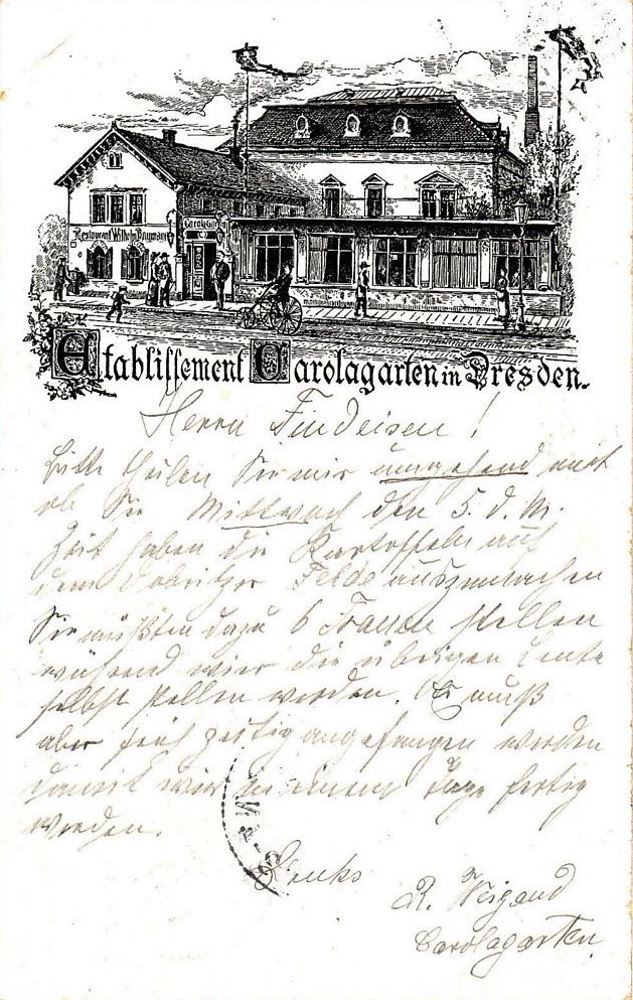 Restaurant Wilhelm Baumann
Carolagarten
Etablissement Carolagarten in Dresden.
Herrn Findeisen!
Bitte theilen Sie mir umgehend mit
ob Sie Mittwoch den 5. d. M.
Zeit haben die Kartoffeln auf
dem Dobritzer Felde auszumachen
Sie müßten dazu 6 Frauen stellen
während wier die übrigen Leute
selbst stellen werden. Es muß
aber früh zeitig angefangen werden
damit wir in einem Tage fertig
werden.
R. Weigand
Carolagarten